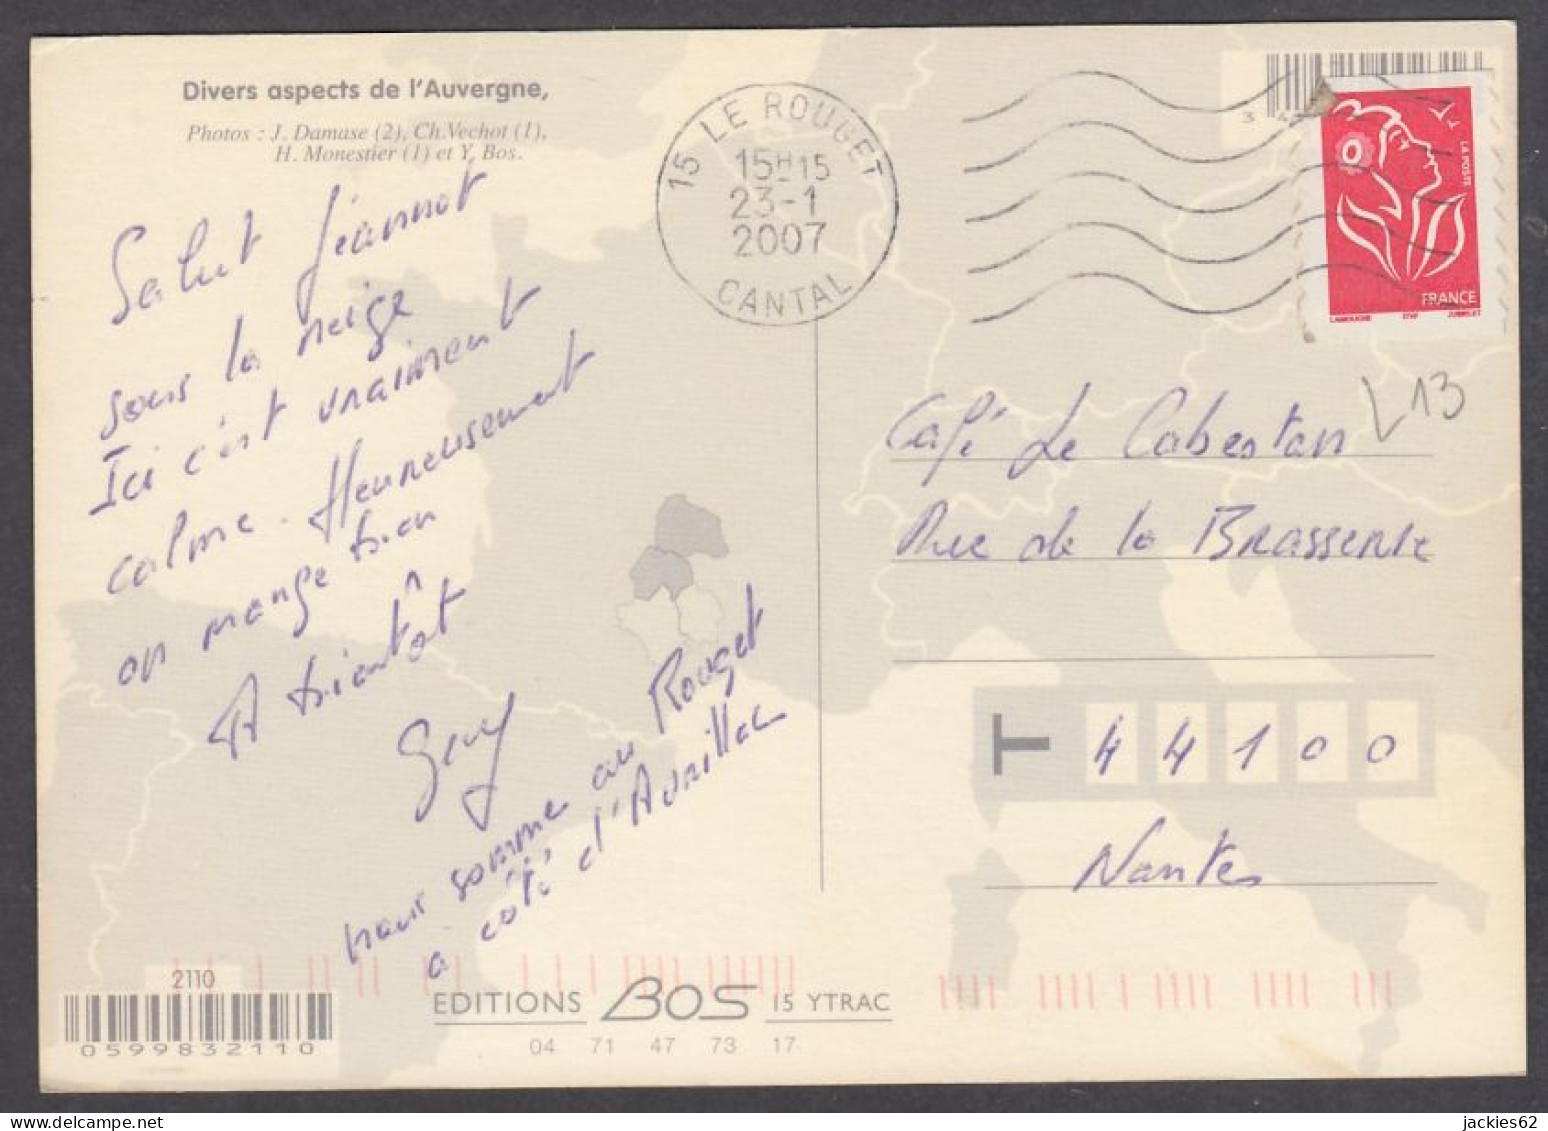 Divers aspects de l'Auvergne,
Photos : J. Damase (2), Ch.Vechot (1),
H. Monestier (1) et Y. Bos.
Salut Jeannot
sous la neige
Ici c'est vraiment
calme. Heureusement
on mange bien
A bientôt
Guy
nous somme au Rouget
a côté d'Aurillac
15 LE ROUGET
15H15
23-1
2007
CANTAL
LA POSTE
FRANCE
LAMOUCHE ITVF JUMELET
L13
Café Le Cabestan
Rue de la Brasserie
T 44100
Nantes
2110
0599832110
EDITIONS BOS 15 YTRAC
04 71 47 73 17
jackies62